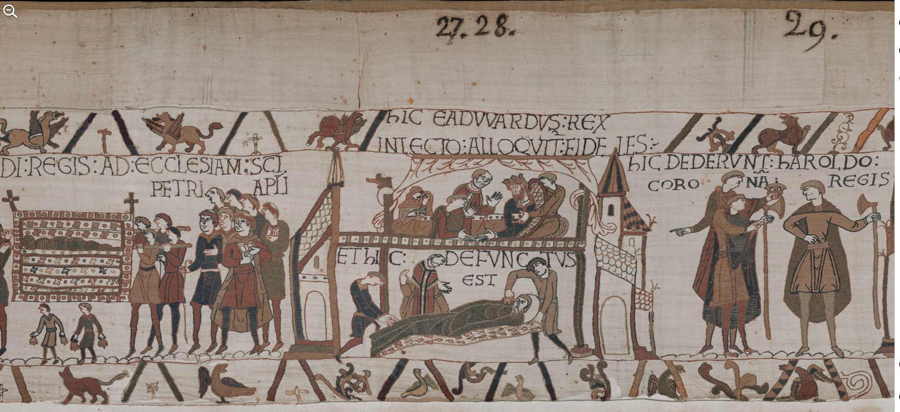 27. 28.
29.
hIC EADVVARDVS: REX
INLECTO: ALLOQVIT: FIDELES:
DI: REGIS: AD: ECCLESIAM: SCI
PETRI APLI
hIC DEDERVNT: hAROLDO:
CORONA REGIS
ET hIC: DEFVNCTVS
EST